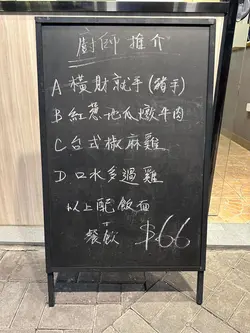 廚師推介
A 橫財就手(豬手)
B 紅蔥地瓜燉牛肉
C 台式椒麻雞
D 口水多過雞
以上配飯/面
+
餐飲 $66